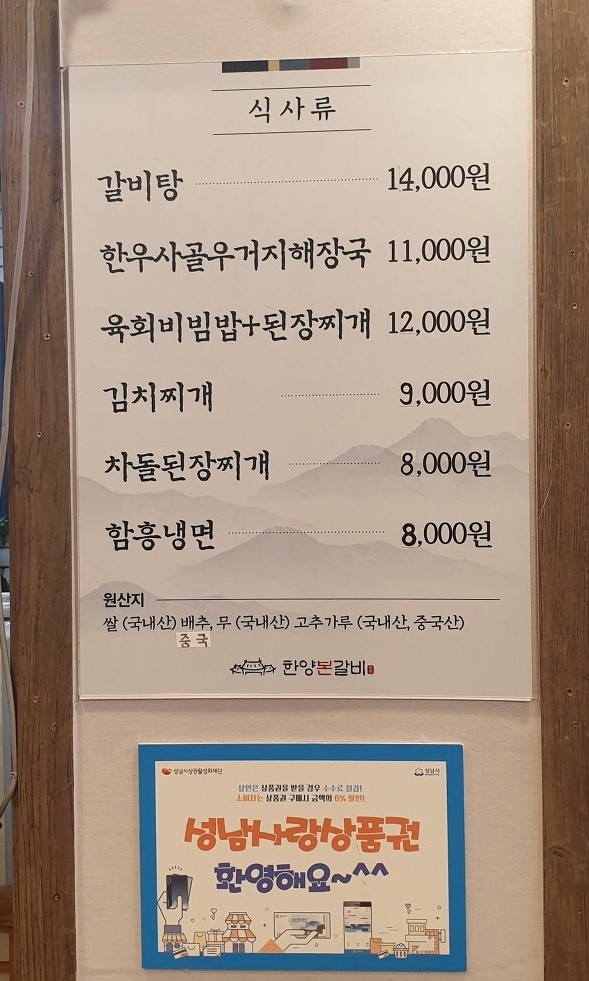 식사류
갈비탕 14,000원
한우사골우거지해장국 11,000원
육회비빔밥+된장찌개 12,000원
김치찌개 9,000원
차돌된장찌개 8,000원
함흥냉면 8,000원
원산지
쌀 (국내산) 배추, 무 (국내산) 고추가루 (국내산, 중국산)
중국
한양본갈비
성남시상권활성화재단 성남시
상인은 상품권을 받을 경우 수수료 절감!
소비자는 상품권 구매시 금액의 6% 할인!
성남사랑상품권
환영해요~^^